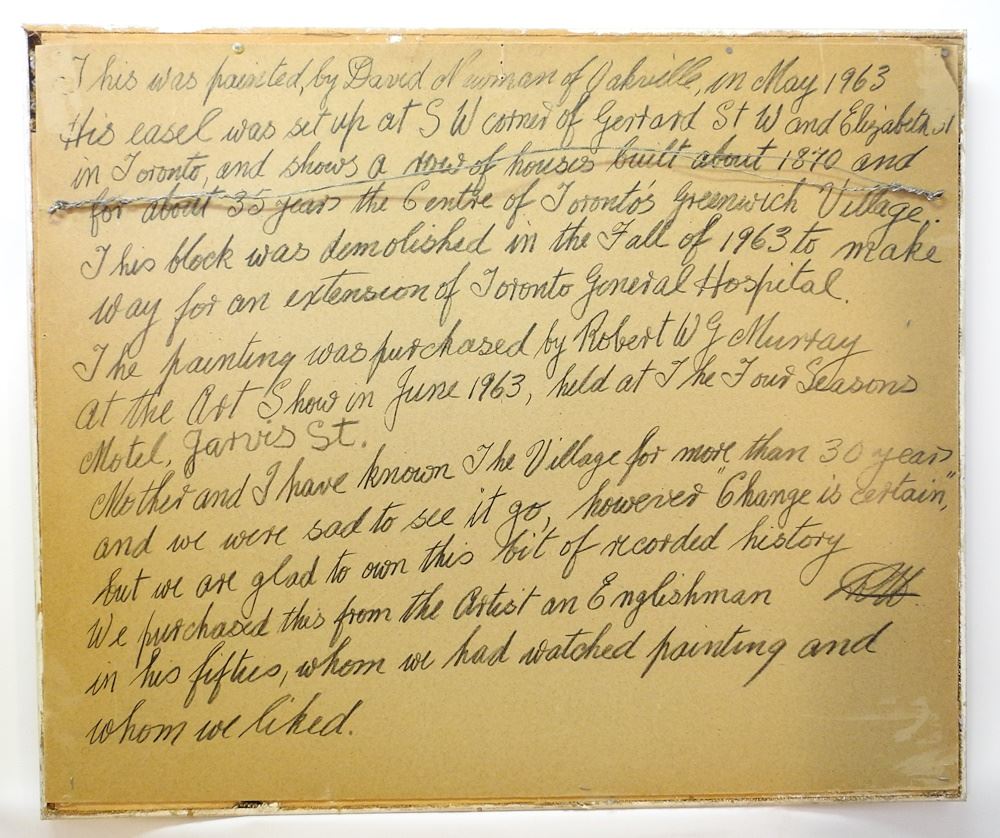 This was painted, by David Newman of Oakville, in May 1963
His easel was set up at S W corner of Gerrard St W and Elizabeth St
in Toronto, and shows a row of houses built about 1870 and
for about 35 years the Centre of Toronto's Greenwich Village.
This block was demolished in the Fall of 1963 to make
way for an extension of Toronto General Hospital.
The painting was purchased by Robert W G Murray
at the Art Show in June 1963, held at The Four Seasons
Motel, Jarvis St.
Mother and I have known The Village for more than 30 years
and we were sad to see it go, however "Change is certain,"
but we are glad to own this bit of recorded history
We purchased this from the Artist an Englishman
in his fifties, whom we had watched painting and
whom we liked.